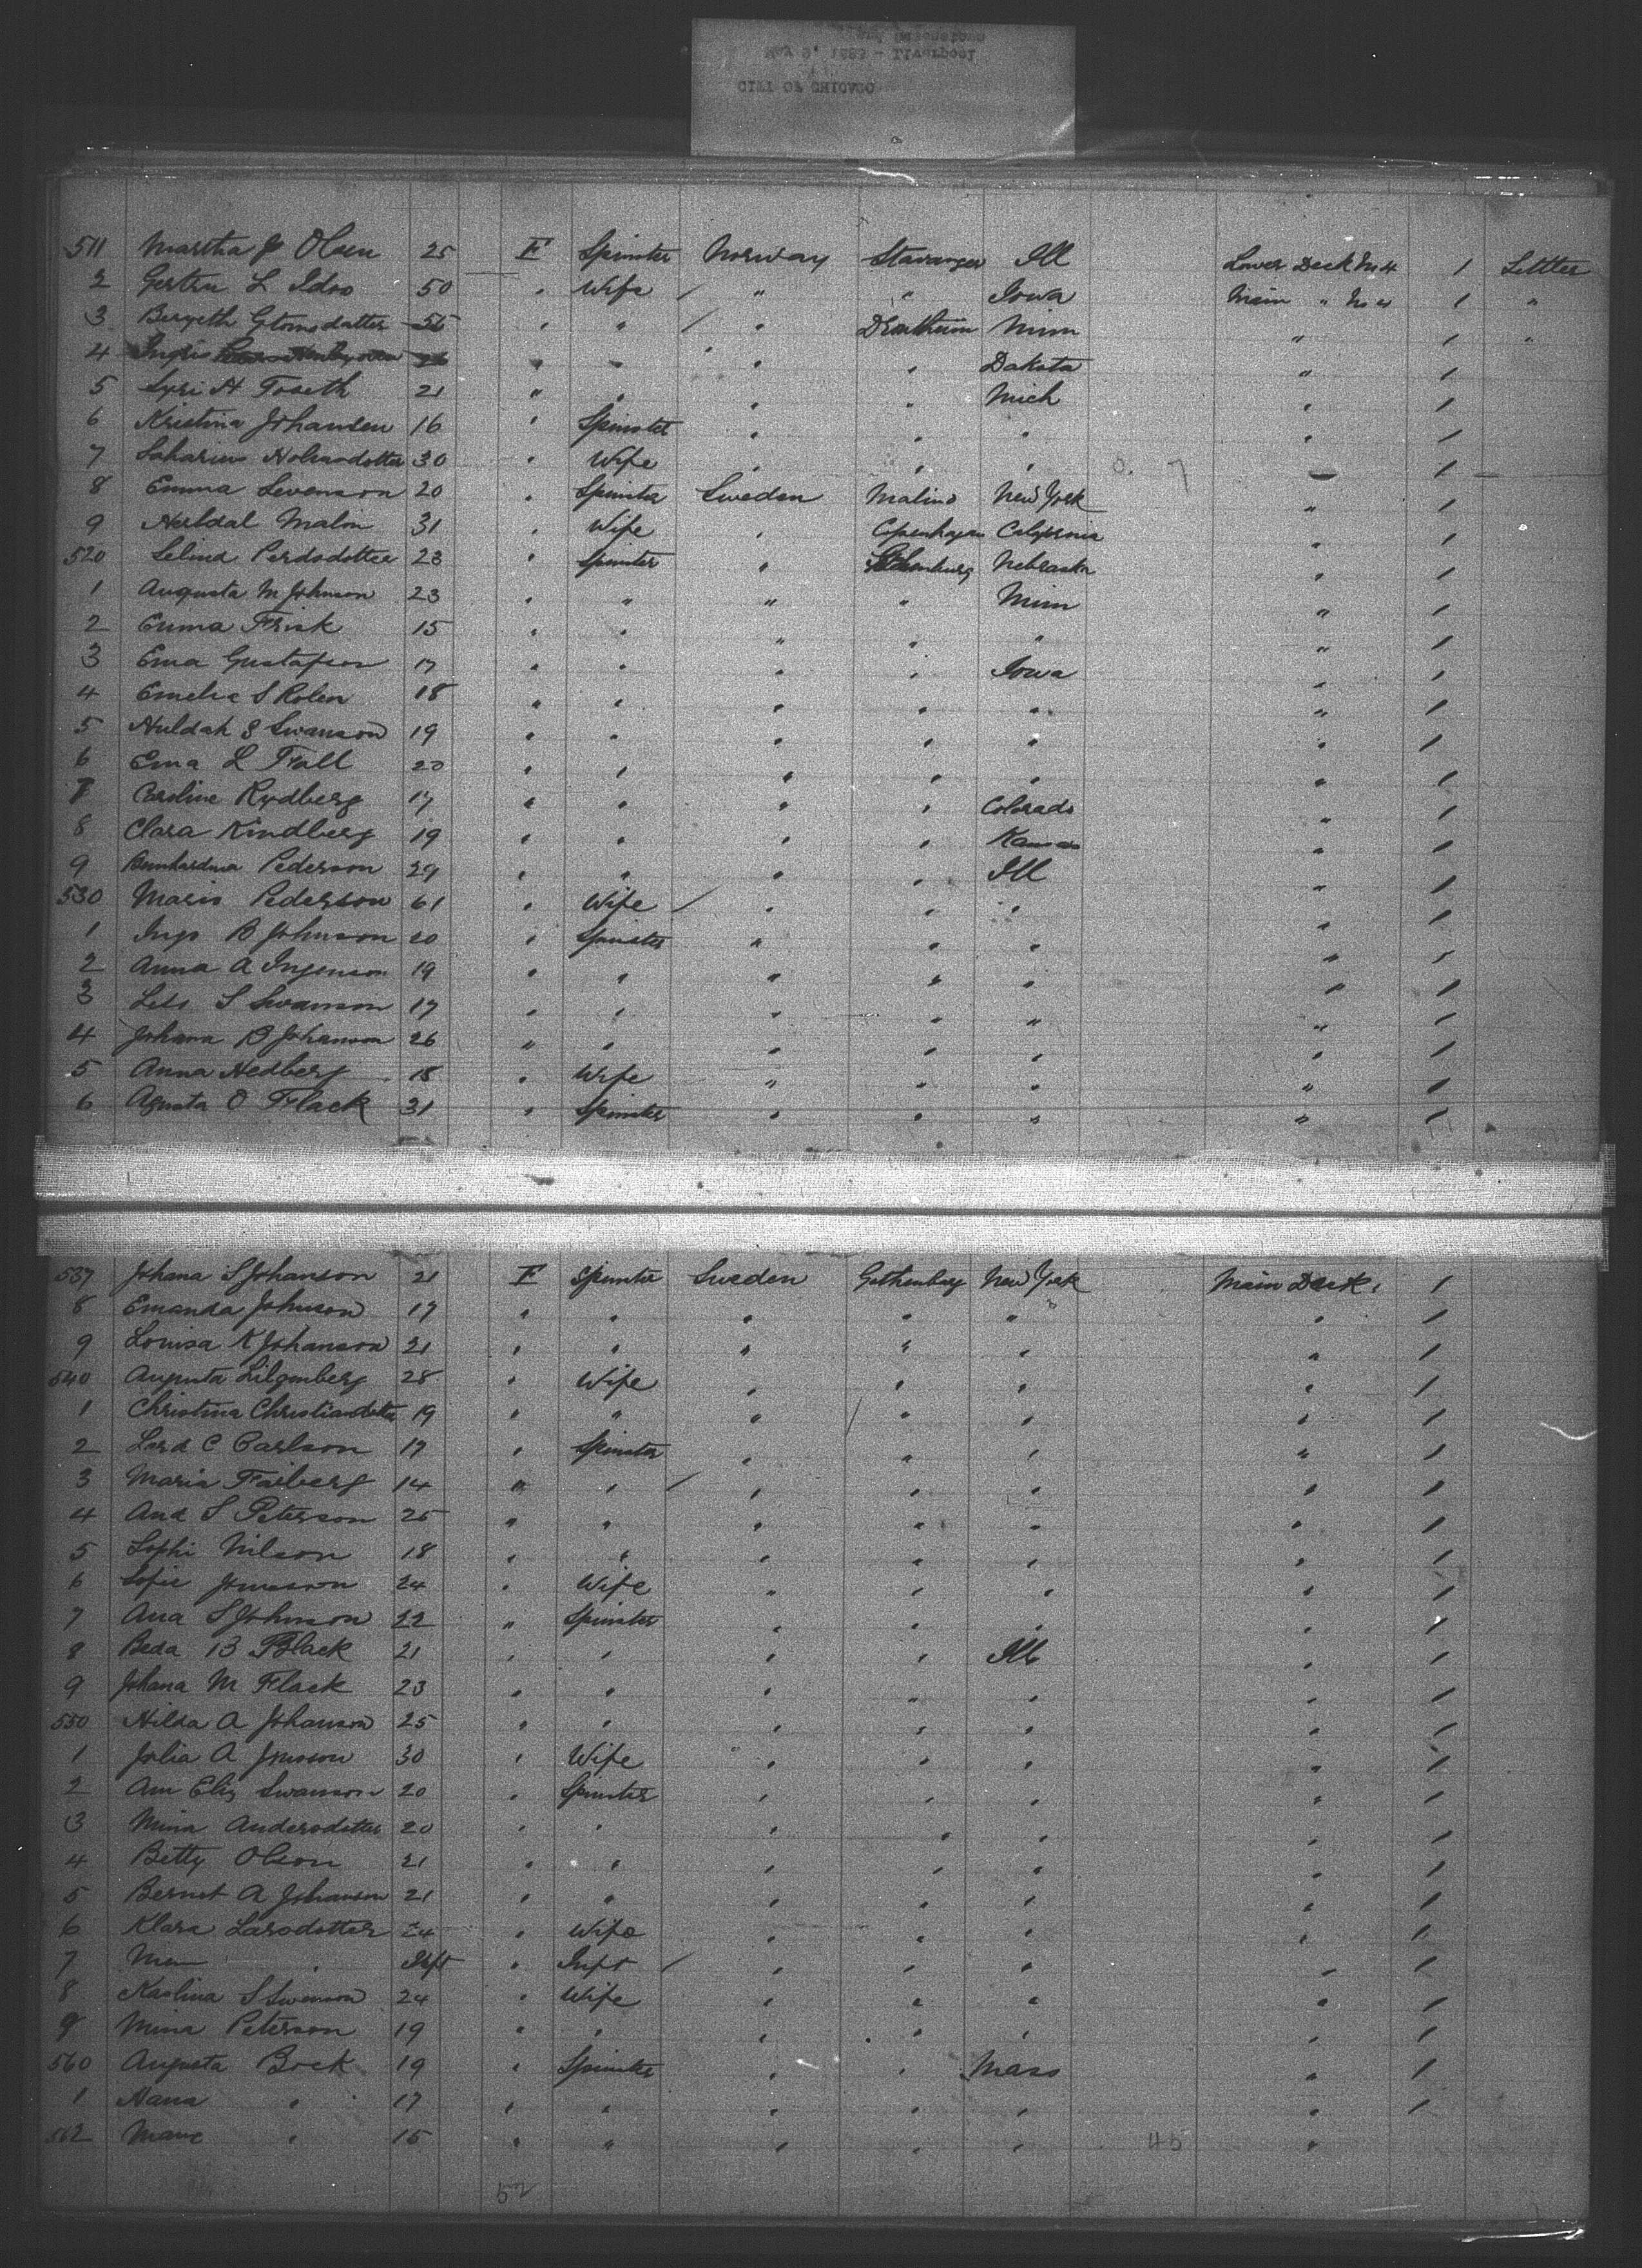 CITY OF CHICAGO
May 3, 1889 - Liverpool
511 Martha J Olsen 25 F Spinster Norway Stavanger Ill Lower Deck No 4 1 Settler
2 L 50 " Wife / " " Iowa Main " No 4 1 "
3 55 " " / " Drontheim Minn " 1 "
4 " " " " Dakota " 1
5 H Toseth 21 " " " " Mich " 1
6 Kristina Johansen 16 " Spinster " " " " 1
7 30 " Wife " " " 1
8 Emma Sevenson 20 " Spinster Sweden Malmo New York " 1
9 Malin 31 " Wife " Copenhagen California " 1
520 Selina 23 " Spinster " Gothenburg Nebraska " 1
1 Augusta M Johnson 23 " " " " Minn " 1
2 Emma Frisk 15 " " " " " " 1
3 Ema Gustafson 17 " " " " Iowa " 1
4 Emelia S Rolen 18 " " " " " " 1
5 Huldah S Swanson 19 " " " " " " 1
6 Ema L Fall 20 " " " " " " 1
7 Caroline Rydberg 17 " " " " Colorado " 1
8 Clara Kindberg 19 " " " " Kansas " 1
9 Pederson 29 " " " " Ill " 1
530 Maria Pederson 61 " Wife / " " " " 1
1 Inga B Johnson 20 " Spinster " " " " 1
2 Anna A Ingenson 19 " " " " " " 1
3 S Swanson 17 " " " " " " 1
4 Johana B Johanson 26 " " " " " " 1
5 Anna Hedberg 18 " Wife " " " " 1
6 Agusta O Flack 31 " Spinster " " " " 1
537 Johana S Johanson 21 F Spinster Sweden Gothenburg New York Main Deck 1
8 Emanda Johnson 17 " " " " " " 1
9 Louisa K Johanson 21 " " " " " " 1
540 Augusta Lilgenberg 28 " Wife " " " " 1
1 Christina Christiandotter 19 " " " / " " " 1
2 C Carlson 17 " Spinster " " " " 1
3 Maria Faiberg 14 " " / " " " " 1
4 Ana S Peterson 25 " " " " " " 1
5 Sophi Nilson 18 " " " " " " 1
6 Sofie 24 " Wife " " " " 1
7 Ana S Johnson 22 " Spinster " " " " 1
8 Beda B Flack 21 " " " " Ill " 1
9 Johana M Flack 23 " " " " " " 1
550 Hilda A Johanson 25 " " " " " " 1
1 Julia A 30 " Wife " " " " 1
2 Ann Eliz Swanson 20 " Spinster " " " " 1
3 Mina Andersdotter 20 " " " " " " 1
4 Betty Olson 21 " " " " " " 1
5 Bernet A Johanson 21 " " " " " " 1
6 Klara Larsdotter 24 " Wife " " " " 1
7 " Inft " Inft / " " " " 1
8 Karlina S Swenson 24 " Wife " " " " 1
9 Mina Peterson 19 " " " " " " 1
560 Augusta Bock 19 " Spinster " " Mass " 1
1 Hana " 17 " " " " " " 1
562 " 15 " " " " " 45 "
52